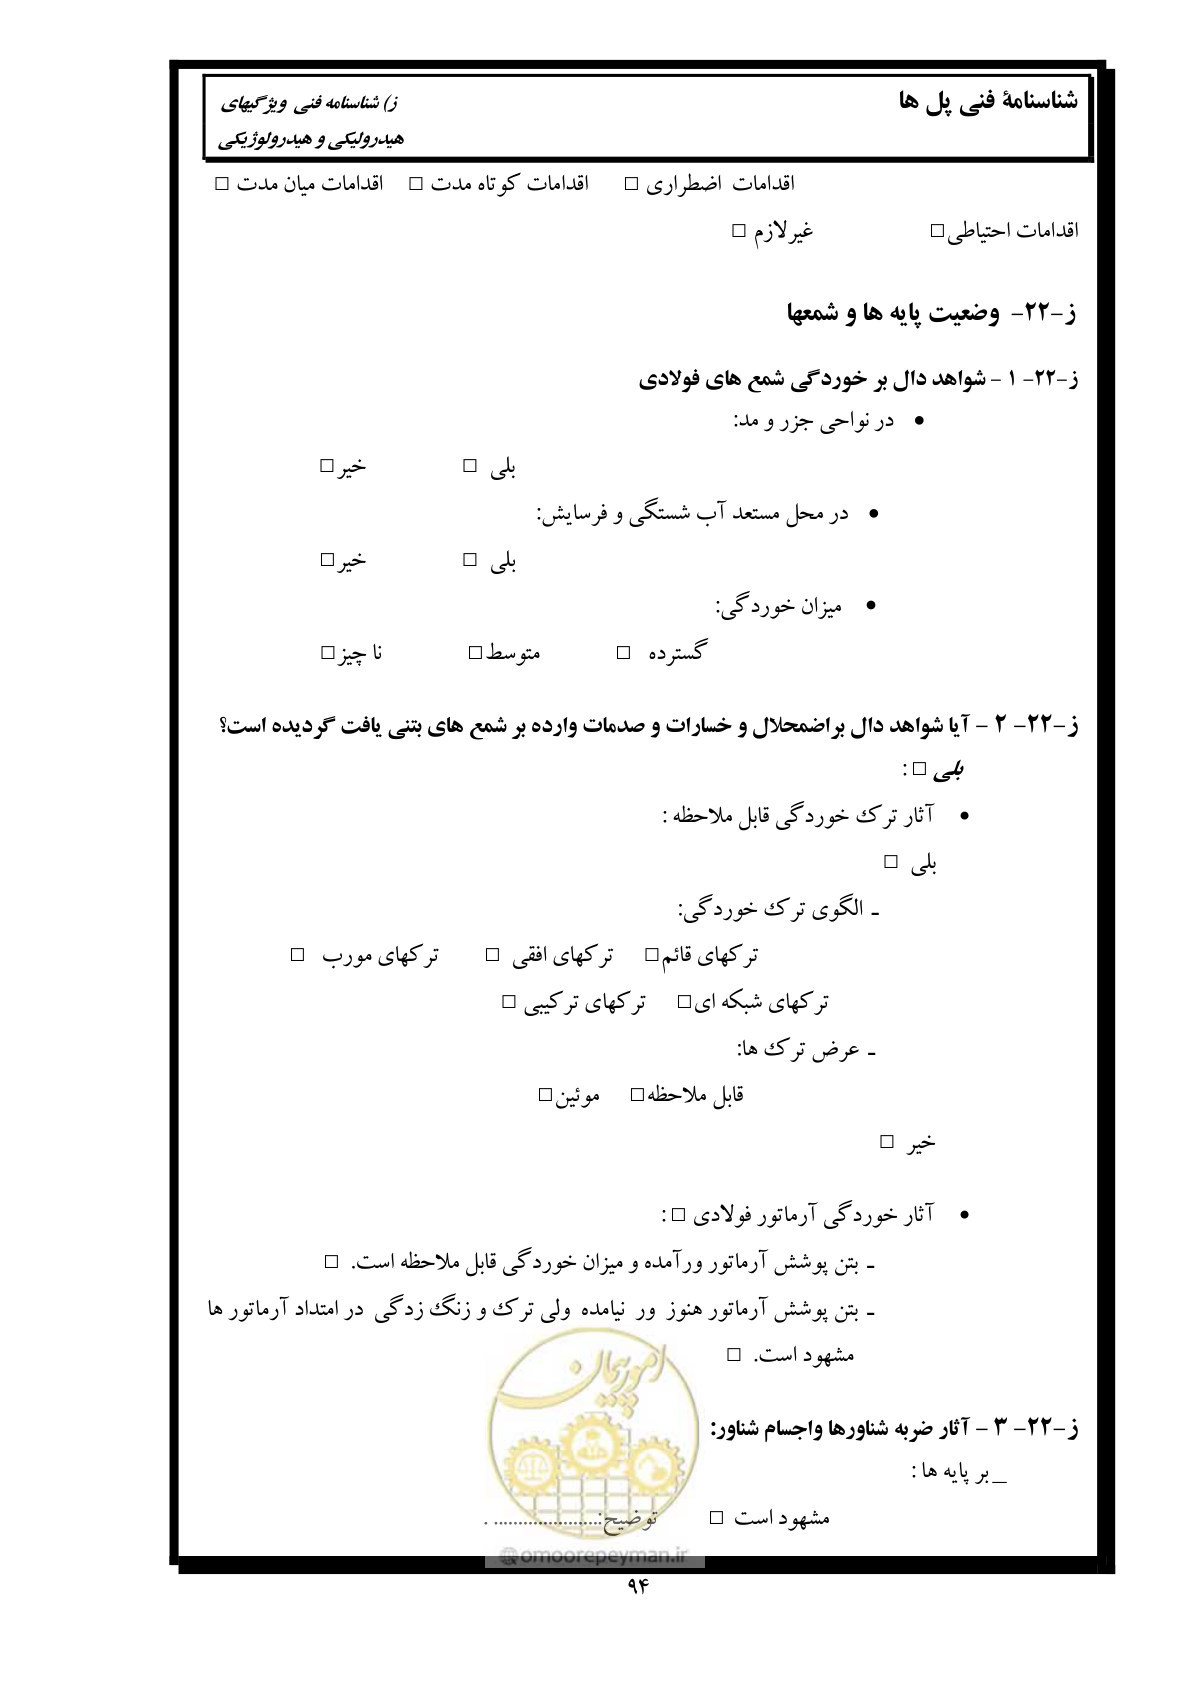 شناسنامهٔ فنی پل ها
ز) شناسنامه فنی ویژگیهای
هیدرولیکی و هیدرولوژیکی
اقدامات اضطراری □ اقدامات کوتاه مدت □ اقدامات میان مدت □
اقدامات احتیاطی□ غیرلازم □
ز-۲۲- وضعیت پایه ها و شمعها
ز-۲۲- ۱ - شواهد دال بر خوردگی شمع های فولادی
• در نواحی جزر و مد:
بلی □ خیر□
• در محل مستعد آب شستگی و فرسایش:
بلی □ خیر□
• میزان خوردگی:
گسترده □ متوسط□ نا چیز□
ز-۲۲- ۲ - آیا شواهد دال براضمحلال و خسارات و صدمات وارده بر شمع های بتنی یافت گردیده است؟
بلی □ :
• آثار ترک خوردگی قابل ملاحظه :
بلی □
ـ الگوی ترک خوردگی:
ترکهای قائم□ ترکهای افقی □ ترکهای مورب □
ترکهای شبکه ای□ ترکهای ترکیبی □
ـ عرض ترک ها:
قابل ملاحظه□ موئین□
خیر □
• آثار خوردگی آرماتور فولادی □ :
ـ بتن پوشش آرماتور ورآمده و میزان خوردگی قابل ملاحظه است. □
ـ بتن پوشش آرماتور هنوز ور نیامده ولی ترک و زنگ زدگی در امتداد آرماتور ها
مشهود است. □
ز-۲۲- ۳ - آثار ضربه شناورها واجسام شناور:
_ بر پایه ها :
مشهود است □ توضیح:..................... .
امور پیمان
@omoorepeyman.ir
۹۴